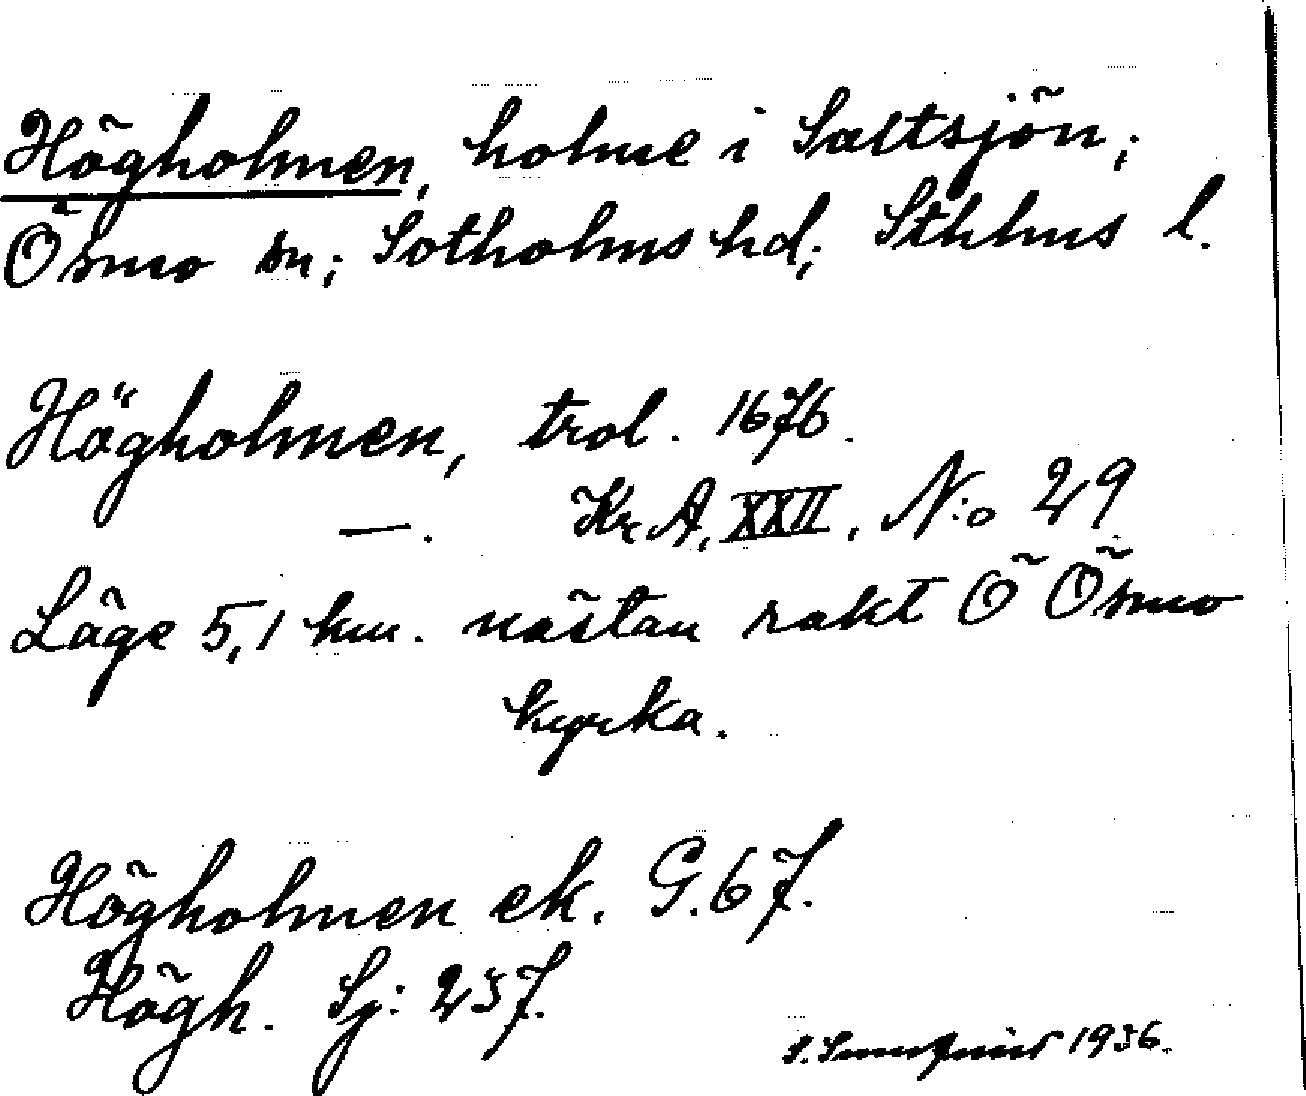 Högholmen, holme i Saltsjön;
Ösmo sn; Sotholms hd; Sthlms l.
Högholmen, trol. 1676.
—. Kr. A. XXII, N:o 29
Läge 5,1 km. nästan rakt Ö Ösmo
kyrka.
Högholmen ek. G. 67.
Högh. Sj: 257.
S. 1936.